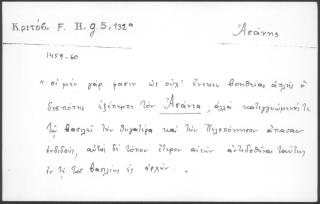 Κριτόβ. F. H. g 5, 132ª
Ἀσάνης
1459-60
" οἱ μὲν γάρ φασιν ὡς οὐχ' ἕνεκεν βοηθείας ἁπλῆς ὁ
δεσπότης ἐξέπεμπε τὸν Ἀσάνεα, ἀλλὰ κατεγγυώμενός τε
τῷ βασιλεῖ τὴν θυγατέρα καὶ τὴν Πελοπόννησον ἅπασαν
ἐνδιδούς, αὐτοὶ δὲ τόπον ἕτερον αἰτῶν ἀντιδοθῆναι ταύτης
ἐν τῇ τοῦ βασιλέως ἀρχῇ. "